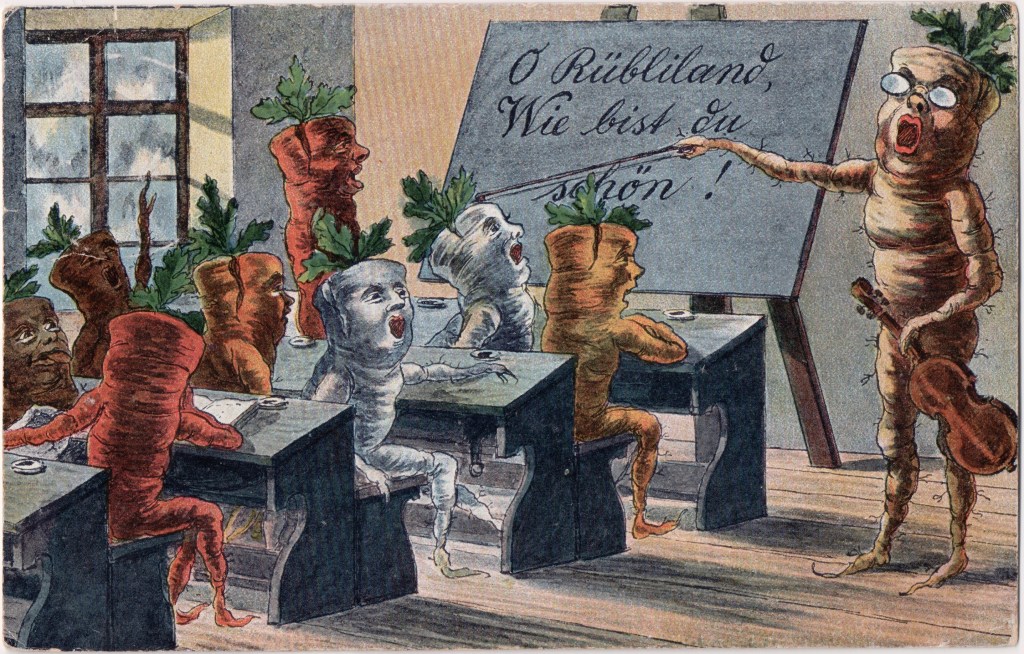 O Rübliland,
Wie bist du
schön !